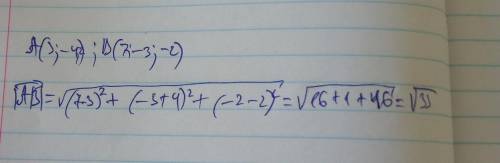 A(3;-4); B(7;-3;-2)
|AB|=√(7-3)²+(-3+4)²+(-2-2)²=√16+1+16=√33